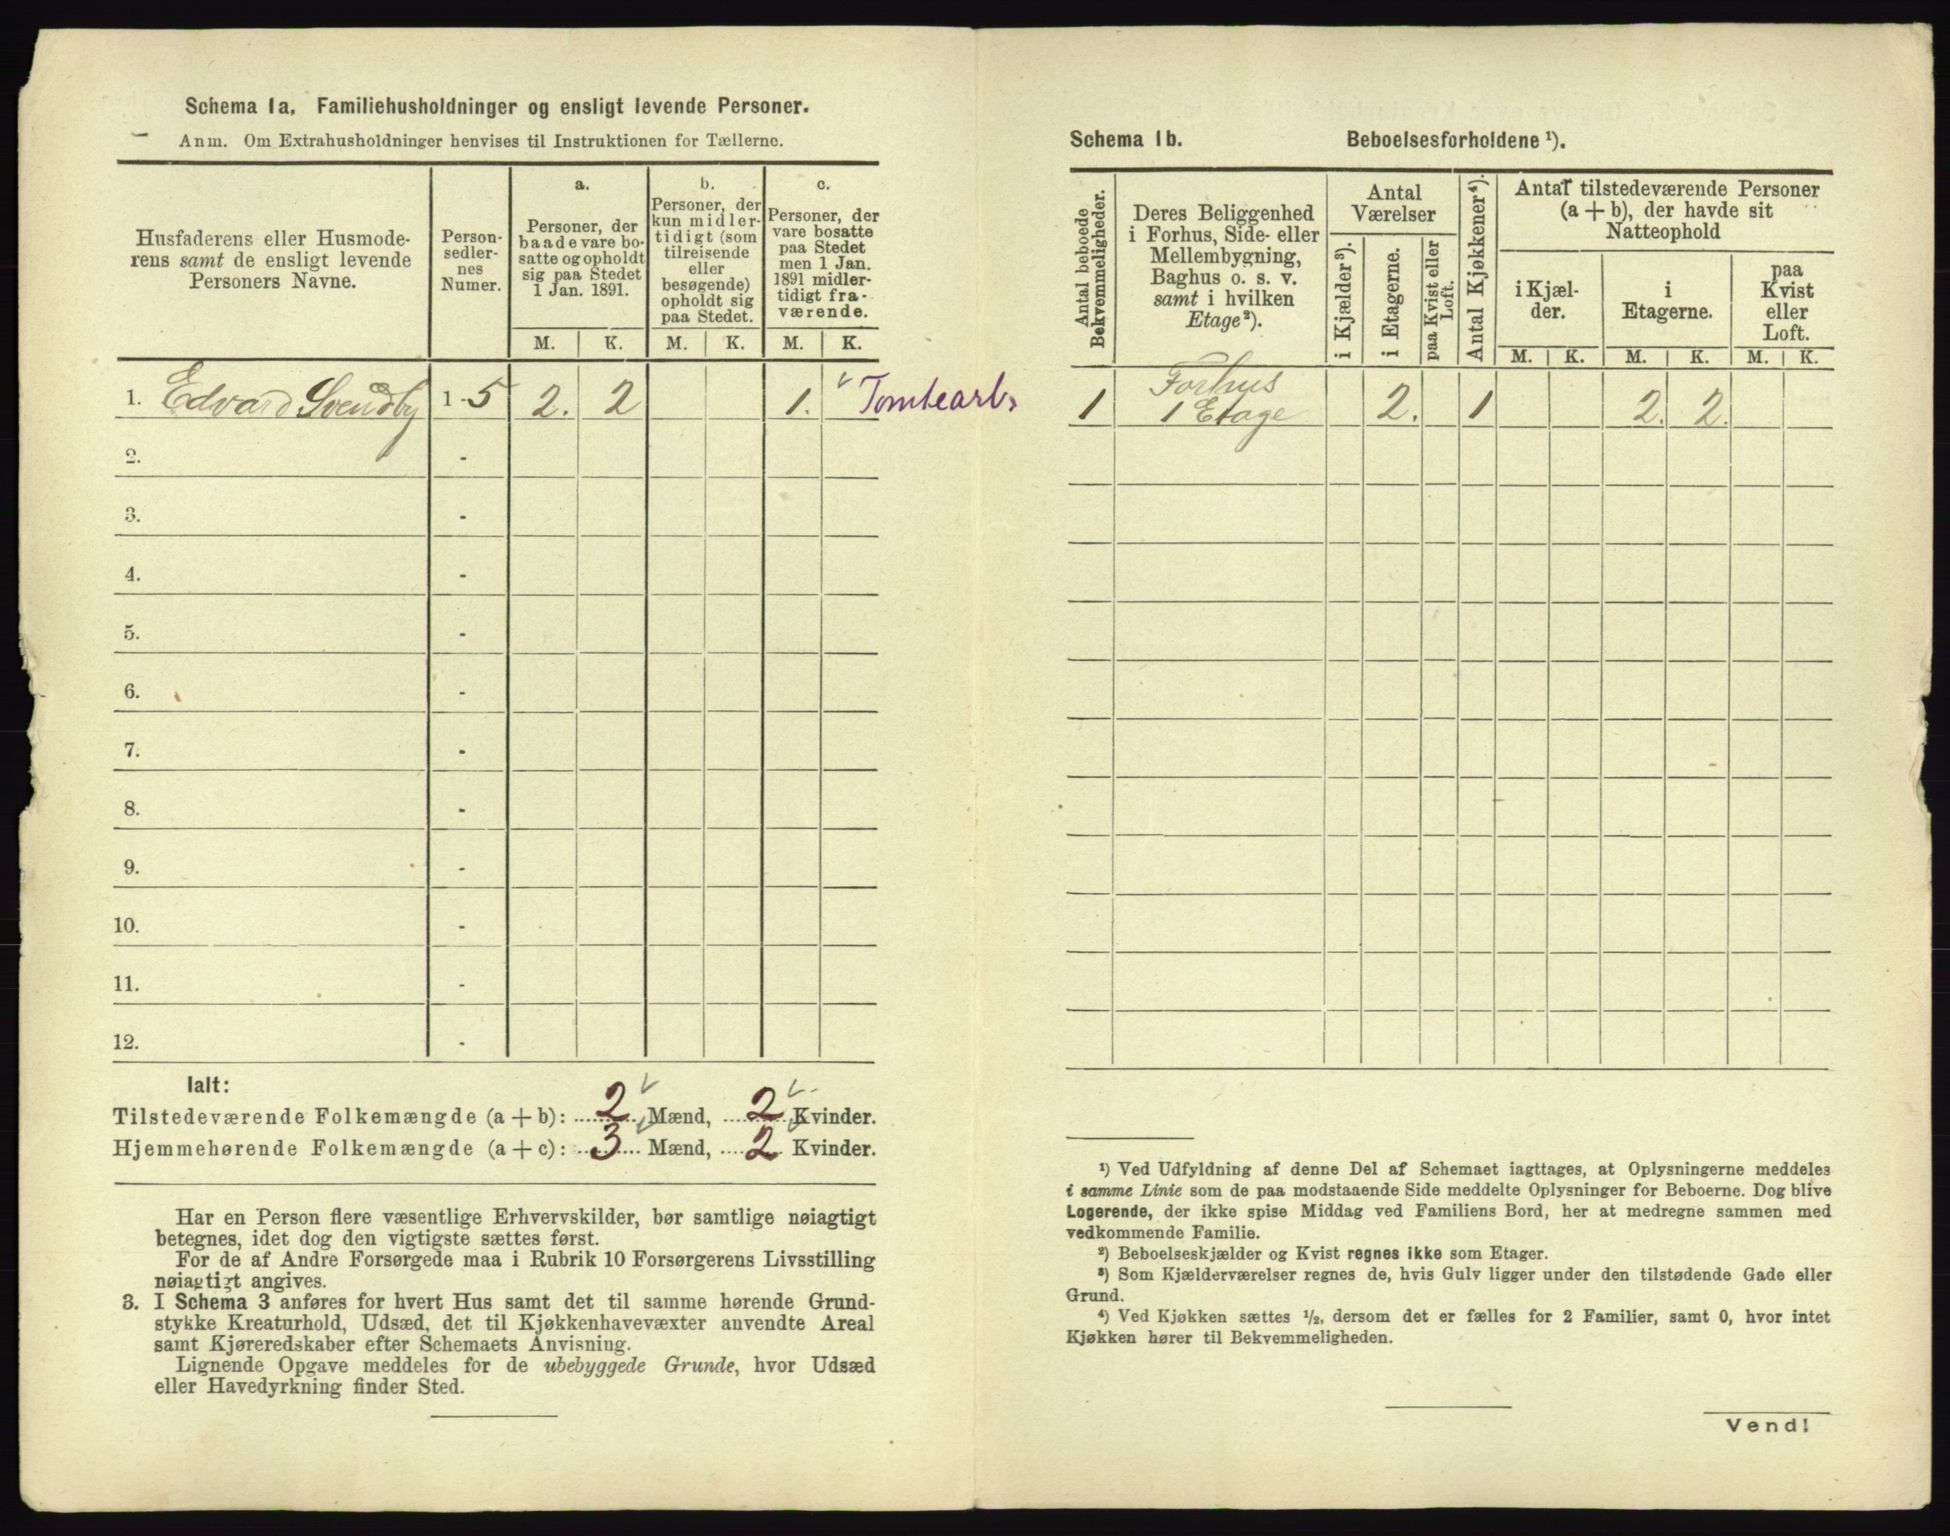 Schema 1a. Familiehusholdninger og ensligt levende Personer.
Anm. Om Extrahusholdninger henvises til Instruktionen for Tællerne.
Husfaderens eller Husmode-
rens samt de ensligt levende
Personers Navne.
Person-
sedler-
nes
Numer.
a.
Personer, der
baade vare bo-
satte og opholdt
sig paa Stedet
1 Jan. 1891.
b.
Personer, der
kun midler-
tidigt (som
tilreisende
eller
besøgende)
opholdt sig
paa Stedet.
c.
Personer, der
vare bosatte
paa Stedet
men 1 Jan.
1891 midler-
tidigt fra-
værende.
M. K. M. K. M. K.
1. Edvard Svendby 1-5 2. 2 1. Tomtearb.
2. -
3. -
4. -
5. -
6. -
7. -
8. -
9. -
10. -
11. -
12. -
Ialt:
Tilstedeværende Folkemængde (a + b): 2 Mænd, 2 Kvinder.
Hjemmehørende Folkemængde (a + c): 3 Mænd, 2 Kvinder.
Har en Person flere væsentlige Erhvervskilder, bør samtlige nøiagtigt
betegnes, idet dog den vigtigste sættes først.
For de af Andre Forsørgede maa i Rubrik 10 Forsørgerens Livsstilling
nøiagtigt angives.
3. I Schema 3 anføres for hvert Hus samt det til samme hørende Grund-
stykke Kreaturhold, Udsæd, det til Kjøkkenhavevæxter anvendte Areal
samt Kjøreredskaber efter Schemaets Anvisning.
Lignende Opgave meddeles for de ubebyggede Grunde, hvor Udsæd
eller Havedyrkning finder Sted.
Schema 1b. Beboelsesforholdene ¹).
Antal beboede
Bekvemmeligheder.
Deres Beliggenhed
i Forhus, Side- eller
Mellembygning,
Baghus o. s. v.
samt i hvilken
Etage²).
Antal
Værelser
i Kjælder³).
i Etagerne.
paa Kvist eller
Loft.
Antal Kjøkkener⁴).
Antal tilstedeværende Personer
(a + b), der havde sit
Natteophold
i Kjæl-
der.
i
Etagerne.
paa
Kvist
eller
Loft.
M. K. M. K. M. K.
Forhus
1 1 Etage 2. 1 2. 2.
¹) Ved Udfyldning af denne Del af Schemaet iagttages, at Oplysningerne meddeles
i samme Linie som de paa modstaaende Side meddelte Oplysninger for Beboerne. Dog blive
Logerende, der ikke spise Middag ved Familiens Bord, her at medregne sammen med
vedkommende Familie.
²) Beboelseskjælder og Kvist regnes ikke som Etager.
³) Som Kjælderværelser regnes de, hvis Gulv ligger under den tilstødende Gade eller
Grund.
⁴) Ved Kjøkken sættes ½, dersom det er fælles for 2 Familier, samt 0, hvor intet
Kjøkken hører til Bekvemmeligheden.
Vend!